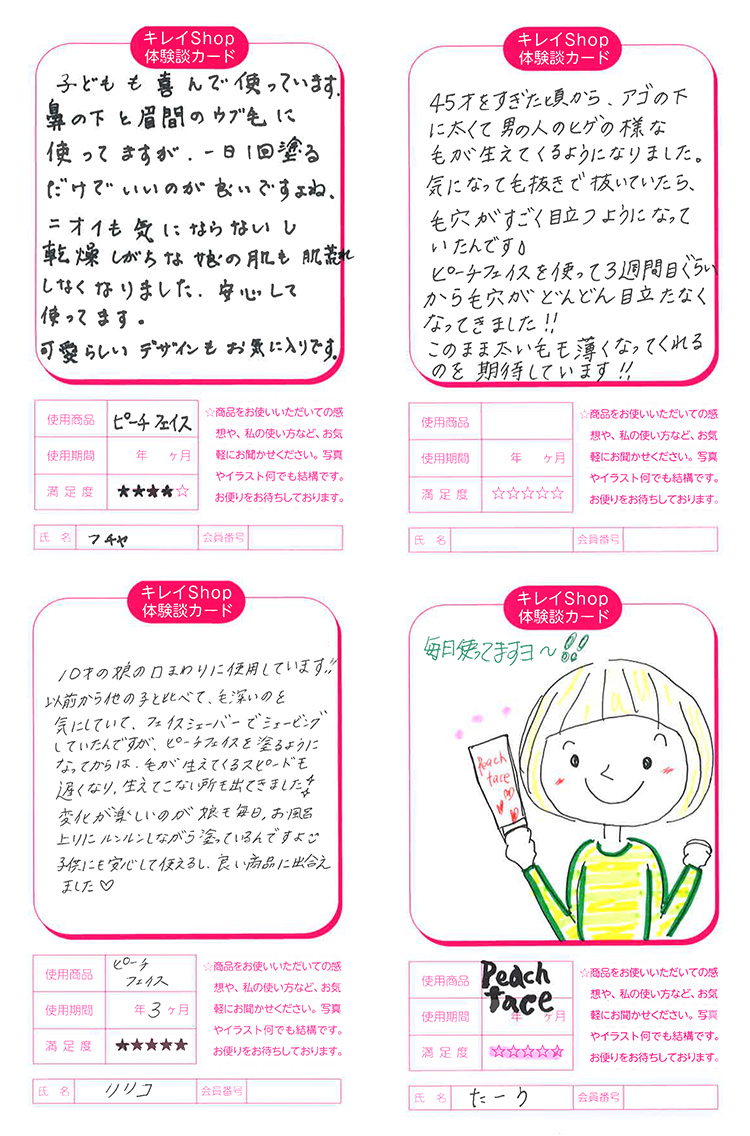 キレイShop
体験談カード
子どもも喜んで使っています。
鼻の下と眉間のウブ毛に
使ってますが、一日1回塗る
だけでいいのが良いですよね、
ニオイも気にならないし
乾燥しがちな娘の肌も肌荒れ
しなくなりました、安心して
使ってます。
可愛らしいデザインもお気に入りです。
使用商品 ピーチフェイス
使用期間 年 ヶ月
満足度 ★★★★☆
☆商品をお使いいただいての感
想や、私の使い方など、お気
軽にお聞かせください。写真
やイラスト何でも結構です。
お便りをお待ちしております。
氏名 フチャ 会員番号
キレイShop
体験談カード
45才をすぎた頃から、アゴの下
に太くて男の人のヒゲの様な
毛が生えてくるようになりました。
気になって毛抜きで抜いていたら、
毛穴がすごく目立つようになって
いたんです。
ピーチフェイスを使って3週間目ぐらい
から毛穴がどんどん目立たなく
なってきました!!
このまま太い毛も薄くなってくれる
のを期待しています!!
使用商品
使用期間 年 ヶ月
満足度 ☆☆☆☆☆
☆商品をお使いいただいての感
想や、私の使い方など、お気
軽にお聞かせください。写真
やイラスト何でも結構です。
お便りをお待ちしております。
氏名 会員番号
キレイShop
体験談カード
10才の娘の口まわりに使用しています!!
以前から他の子と比べて、毛深いのを
気にしていて、フェイスシェーバーでシェービング
していたんですが、ピーチフェイスを塗るように
なってからは、毛が生えてくるスピードも
遅くなり、生えてこない所も出てきました
変化が楽しいのが娘も毎日、お風呂
上りにルンルンしながら塗っているんですよ
子供にも安心して使えるし、良い商品に出会え
ました♡
使用商品 ピーチ
フェイス
使用期間 年 3 ヶ月
満足度 ★★★★★
☆商品をお使いいただいての感
想や、私の使い方など、お気
軽にお聞かせください。写真
やイラスト何でも結構です。
お便りをお待ちしております。
氏名 リリコ 会員番号
キレイShop
体験談カード
毎日使ってますヨ〜!!
Peach
face
使用商品 Peach
face
使用期間 年 ヶ月
満足度 ☆☆☆☆☆
☆商品をお使いいただいての感
想や、私の使い方など、お気
軽にお聞かせください。写真
やイラスト何でも結構です。
お便りをお待ちしております。
氏名 たーり 会員番号